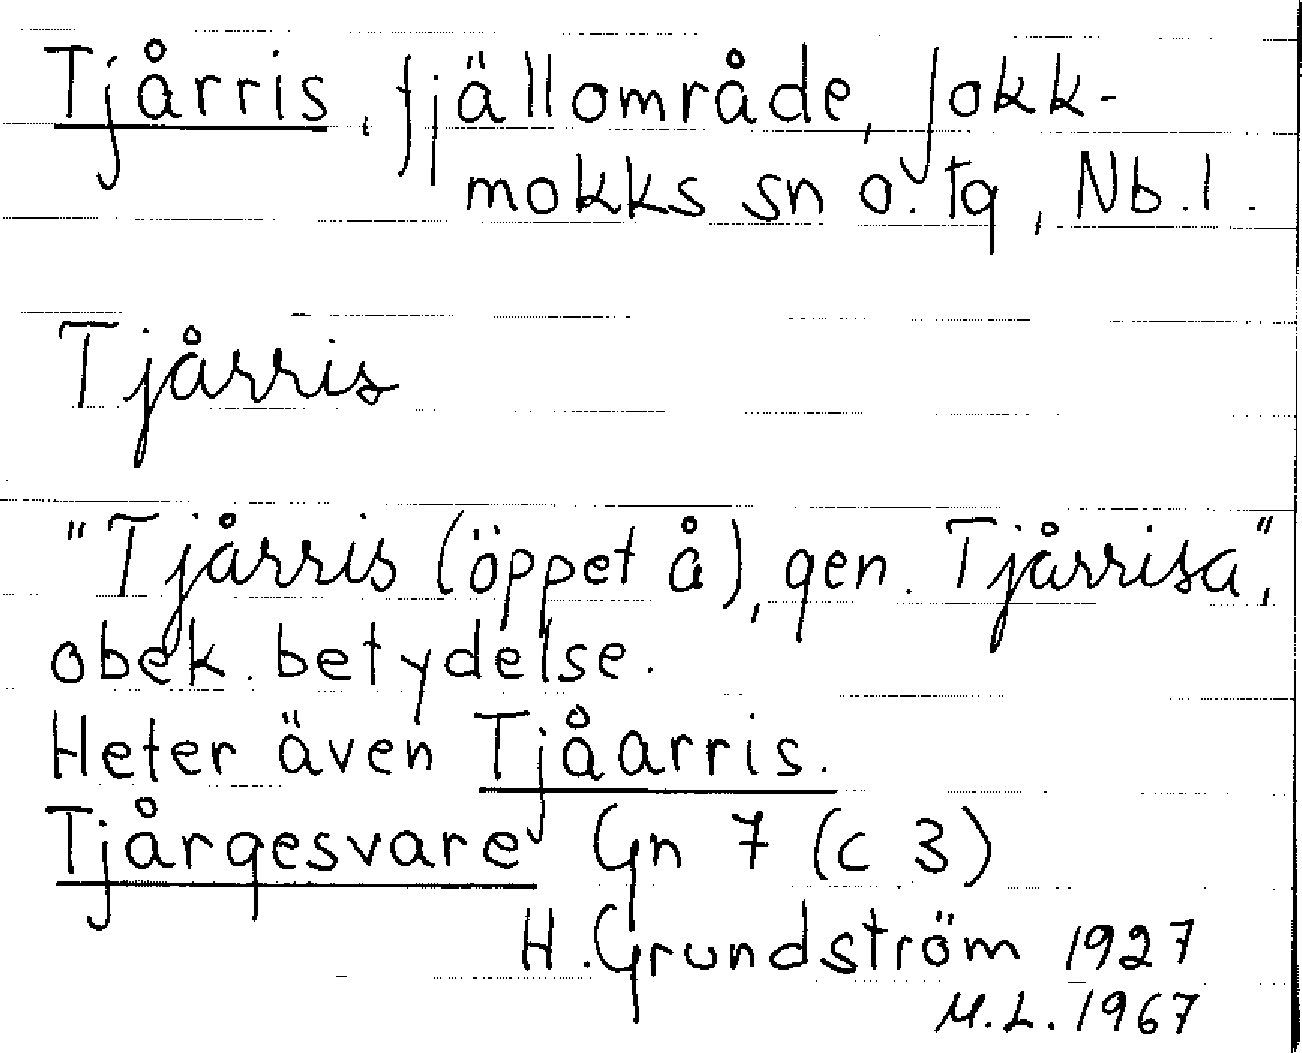 Tjårris, fjällområde, Jokk-
mokks sn o. tg, Nb. l.
Tjårris
"Tjårris (öppet å), gen. Tjårrisa",
obek. betydelse.
Heter även Tjåarris.
Tjårgesvare Gn 7 (c 3)
H. Grundström 1927
M.L. 1967